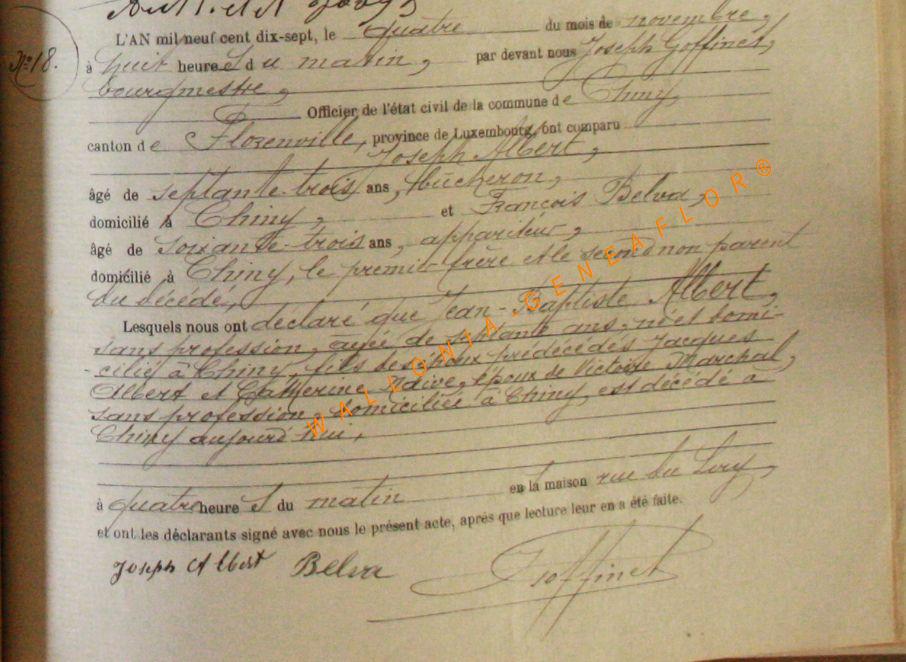 N° 18.
L'AN mil neuf cent dix-sept, le quatre du mois de novembre,
à huit heure s du matin, par devant nous Joseph Goffinet,
bourgmestre,
Officier de l'état civil de la commune de Chiny
canton de Florenville, province de Luxembourg, ont comparu
Joseph Albert,
âgé de septante-trois ans, bûcheron,
domicilié à Chiny, et François Belva,
âgé de soixante-trois ans, appariteur,
domicilié à Chiny, le premier frère et le second non parent
du décédé,
Lesquels nous ont déclaré que Jean-Baptiste Albert,
sans profession, âgée de septante ans, né et domi-
-cilié à Chiny, fils des époux prédécédés Jacques
Albert et Catherine époux de Victoire Marchal,
sans profession, domiciliée à Chiny, est décédé à
Chiny aujourd'hui,
à quatre heure s du matin en la maison rue du
et ont les déclarants signé avec nous le présent acte, après que lecture leur en a été faite.
Joseph Albert Belva Goffinet
WALLONIA-GENEAFLOR®